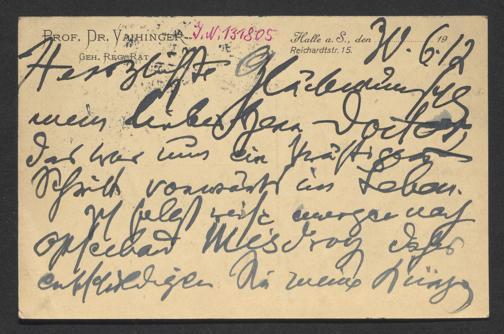 Prof. Dr. Vaihinger
Geh. Reg.-Rat
I.N. 131805
Halle a. S., den 30. 6. 1912
Reichardtstr. 15.
Herzlichste Glückwünsche
mein lieber Herr Doctor,
das war nun ein kräftiger
Schritt vorwärts im Leben.
Ich selbst reise morgen nach
Ostseebad Misdroy daher
entschuldigen Sie meine Kürze